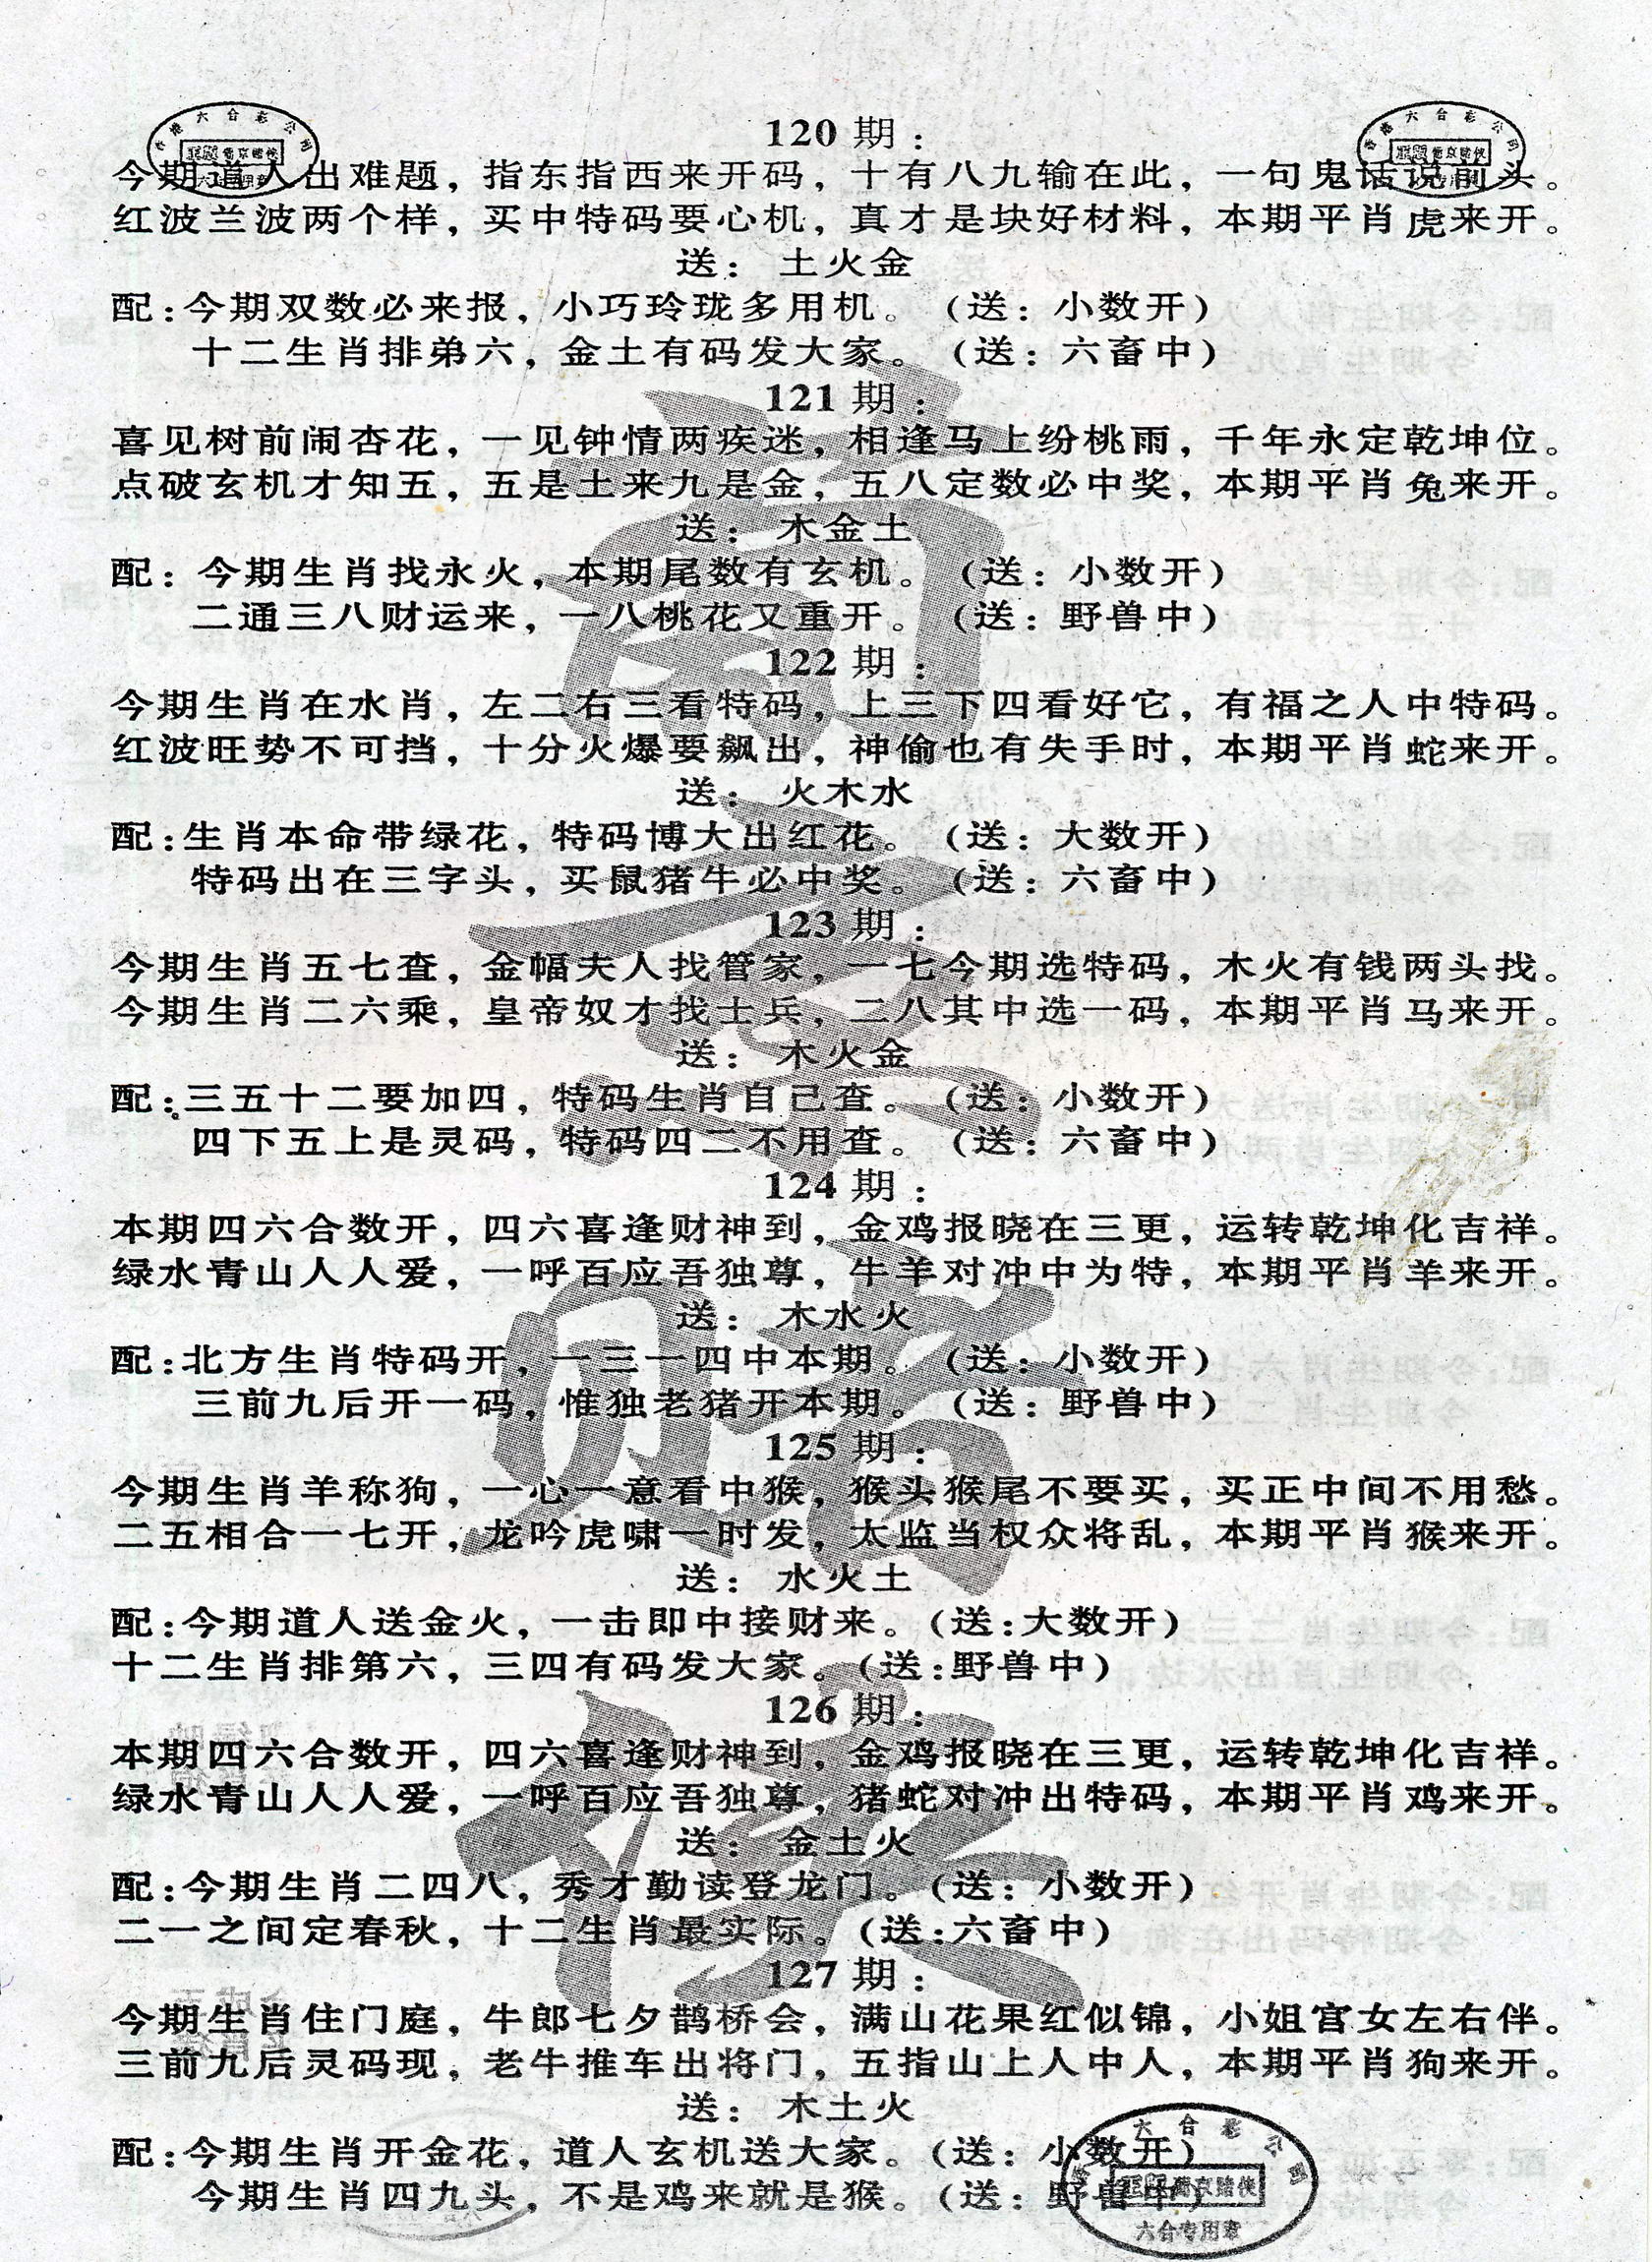 120 期：
今期道人出难题，指东指西来开码，十有八九输在此，一句鬼话说前头。
红波兰波两个样，买中特码要心机，真才是块好材料，本期平肖虎来开。
送： 土火金
配：今期双数必来报，小巧玲珑多用机。（送：小数开）
十二生肖排弟六，金土有码发大家。（送：六畜中）
121 期：
喜见树前闹杏花，一见钟情两疾迷，相逢马上纷桃雨，千年永定乾坤位。
点破玄机才知五，五是土来九是金，五八定数必中奖，本期平肖兔来开。
送： 木金土
配：今期生肖找永火，本期尾数有玄机。（送：小数开）
二通三八财运来，一八桃花又重开。（送：野兽中）
122 期：
今期生肖在水肖，左二右三看特码，上三下四看好它，有福之人中特码。
红波旺势不可挡，十分火爆要飙出，神偷也有失手时，本期平肖蛇来开。
送： 火木水
配：生肖本命带绿花，特码博大出红花。（送：大数开）
特码出在三字头，买鼠猪牛必中奖。（送：六畜中）
123 期：
今期生肖五七查，金幅夫人找管家，一七今期选特码，木火有钱两头找。
今期生肖二六乘，皇帝奴才找士兵，二八其中选一码，本期平肖马来开。
送： 木火金
配：三五十二要加四，特码生肖自己查。（送：小数开）
四下五上是灵码，特码四二不用查。（送：六畜中）
124 期：
本期四六合数开，四六喜逢财神到，金鸡报晓在三更，运转乾坤化吉祥。
绿水青山人人爱，一呼百应吾独尊，牛羊对冲中为特，本期平肖羊来开。
送： 木水火
配：北方生肖特码开，一三一四中本期。（送：小数开）
三前九后开一码，惟独老猪开本期。（送：野兽中）
125 期：
今期生肖羊称狗，一心一意看中猴，猴头猴尾不要买，买正中间不用愁。
二五相合一七开，龙吟虎啸一时发，太监当权众将乱，本期平肖猴来开。
送： 水火土
配：今期道人送金火，一击即中接财来。（送：大数开）
十二生肖排第六，三四有码发大家。（送：野兽中）
126 期：
本期四六合数开，四六喜逢财神到，金鸡报晓在三更，运转乾坤化吉祥。
绿水青山人人爱，一呼百应吾独尊，猪蛇对冲出特码，本期平肖鸡来开。
送： 金土火
配：今期生肖二四八，秀才勤读登龙门。（送：小数开）
二一之间定春秋，十二生肖最实际。（送：六畜中）
127 期：
今期生肖住门庭，牛郎七夕鹊桥会，满山花果红似锦，小姐宫女左右伴。
三前九后灵码现，老牛推车出将门，五指山上人中人，本期平肖狗来开。
送： 木土火
配：今期生肖开金花，道人玄机送大家。（送：小数开）
今期生肖四九头，不是鸡来就是猴。（送：野兽中）
六合专用章